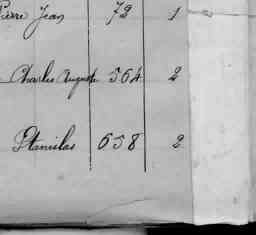 Pierre Jean 72 1
Charles Auguste 564 2
Stanislas 658 2